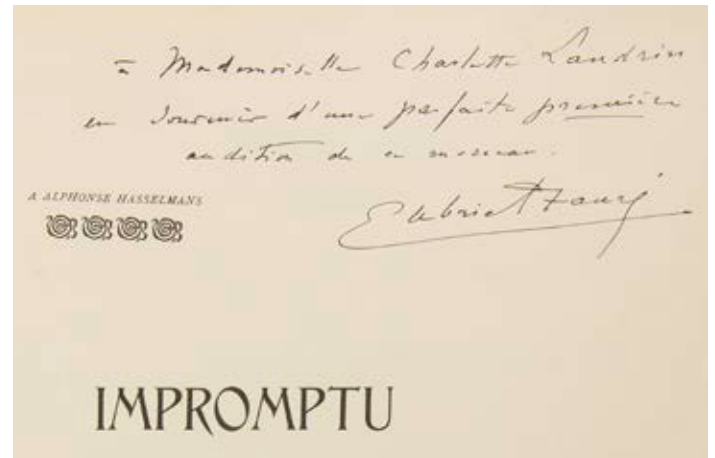 à Mademoiselle Charlotte Landrin
en souvenir d'une parfaite première
audition de ce morceau.
Gabriel Fauré
A ALPHONSE HASSELMANS
IMPROMPTU